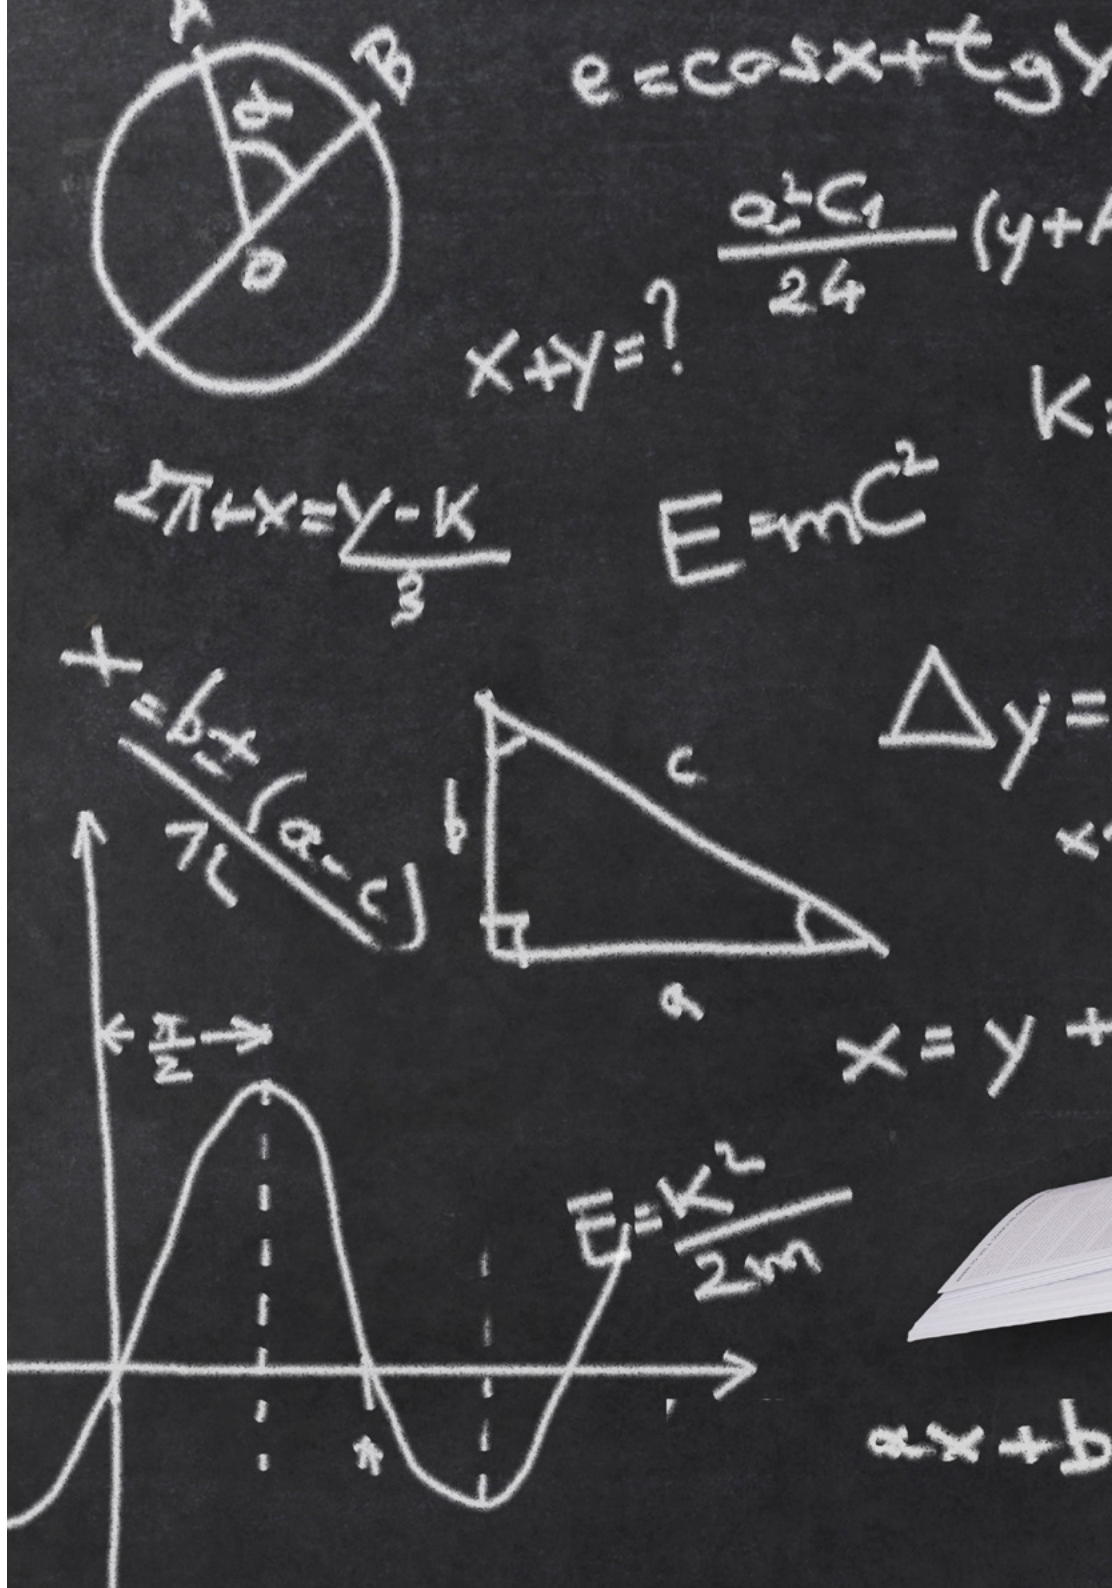 A
B
α
O
e=cosx+tgy
a²C₁/24 (y+A
x+y=?
K=
2π+x=y-K/3
E=mC²
x=b±(a-c)
π
Δy=
b
c
a
x
π/2
x=y+
E=K²/2m
π
ax+b